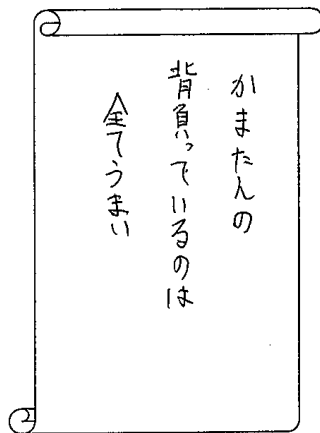 かまたんの
背負っているのは
全てうまい